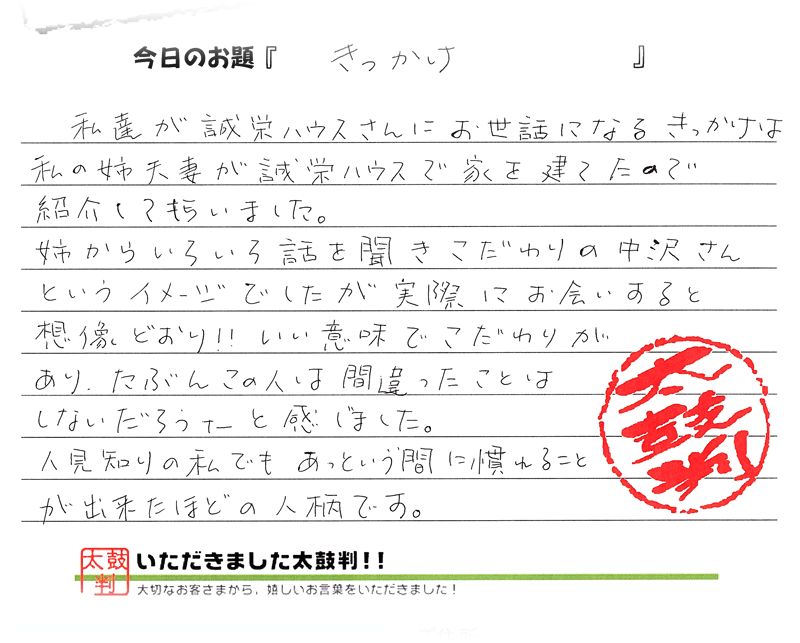 今日のお題『 きっかけ 』
私達が誠栄ハウスさんにお世話になるきっかけは
私の姉夫妻が誠栄ハウスで家を建てたので
紹介してもらいました。
姉からいろいろ話を聞きこだわりの中沢さん
というイメージでしたが実際にお会いすると
想像どおり!!いい意味でこだわりが
あり、たぶんこの人は間違ったことは
しないだろうなーと感じました。
人見知りの私でもあっという間に慣れること
が出来たほどの人柄です。
太鼓判
太鼓判
いただきました太鼓判!!
大切なお客さまから、嬉しいお言葉をいただきました!